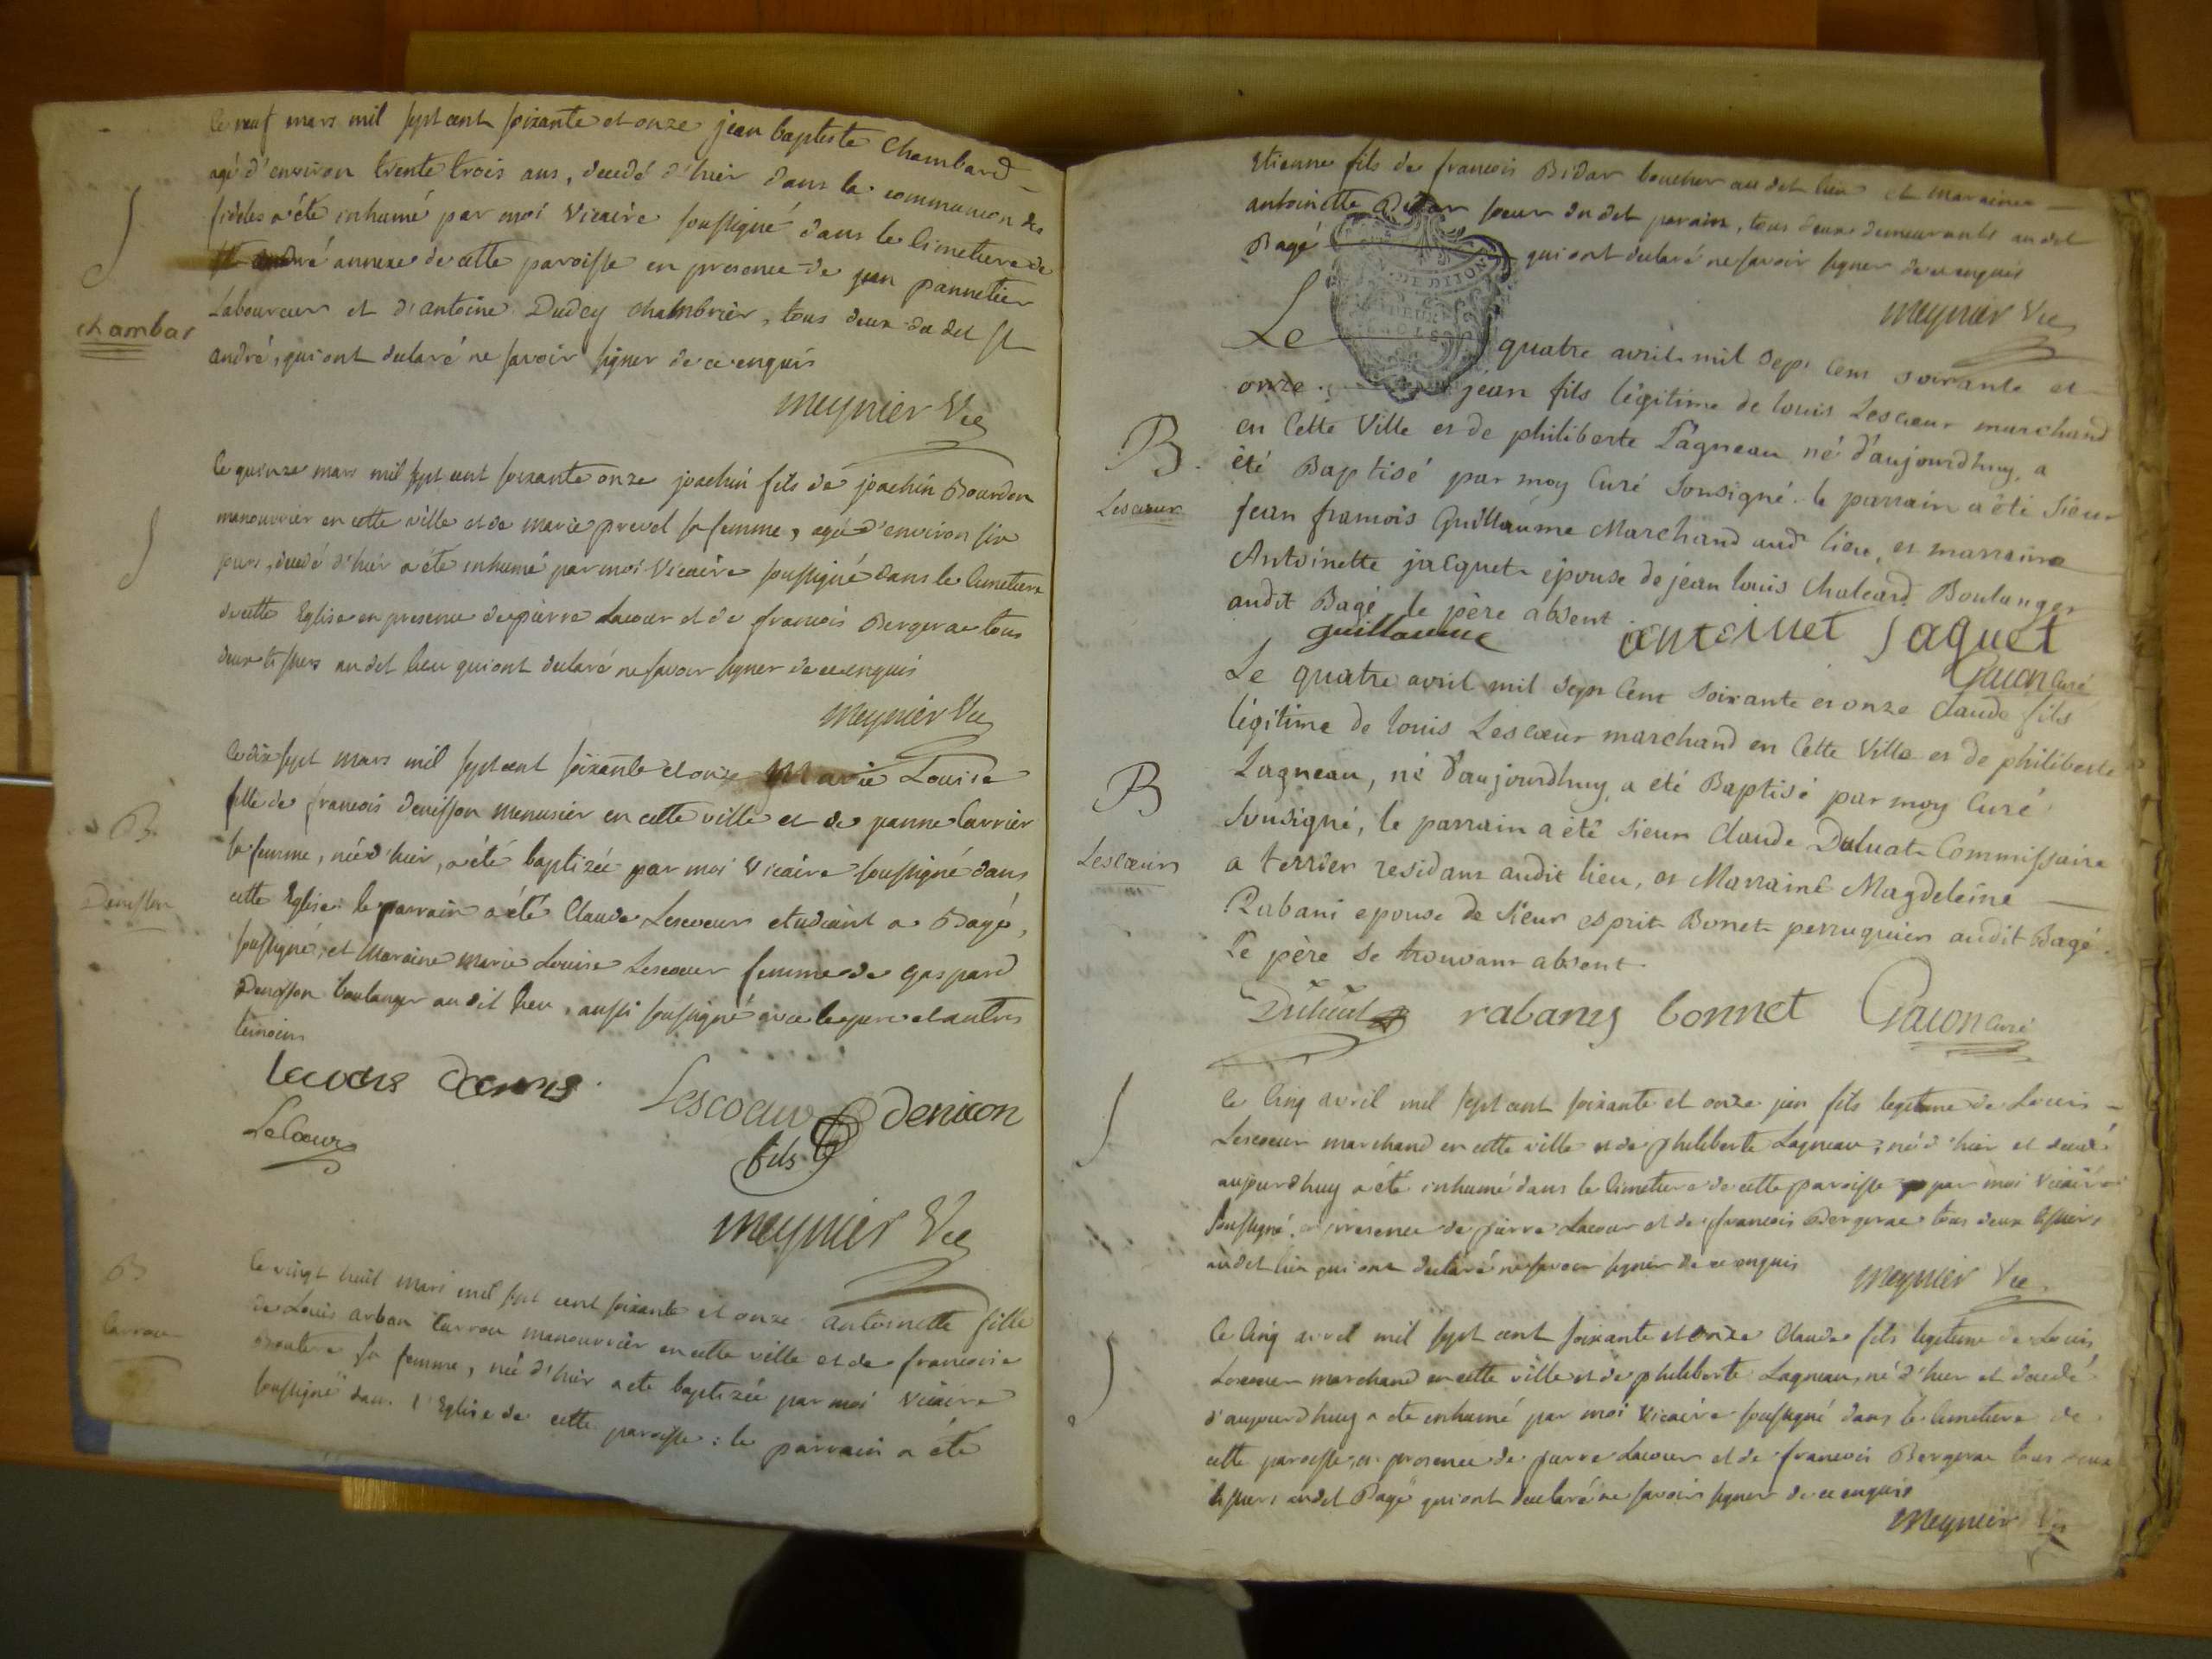 Le neuf mars mil sept cent soixante et onze jean baptiste Chambard
agé d'environ trente trois ans, decedé d'hier dans la communion des
fideles a été inhumé par moi Vicaire soussigné dans le cimetiere de
St andré annexe de cette paroisse en presence de jean pannetier
Laboureur et d'antoine Dudey chambrier, tous deux du dit St
andré, qui ont declaré ne savoir signer de ce enquis
Meynier Vic
chambar
Le quinze mars mil sept cent soixante onze joachin fils de joachin Bourdon
manouvrier en cette ville et de marie prevel sa femme, agé d'environ six
jours, decedé d'hier a été inhumé par moi Vicaire soussigné dans le Cimetiere
de cette Eglise en presence de pierre Lacour et de francois Bergerac tous
deux tissiers au dit lieu qui ont declaré ne savoir signer de ce enquis
Meynier Vic
B
Denisson
Le dix sept mars mil sept cent soixante et onze Marie Louise
fille de francois denisson menusier en cette ville et de janne Carrier
sa femme, née d'hier, a été baptizée par moi Vicaire soussigné dans
cette Eglise: le parrain a été Claude Lescoeur etudiant a Bagé,
soussigné, et Maraine marie Louise Lescoeur femme de gaspard
Denisson boulanger au dit lieu, aussi soussigné avec le pere et autres
temoins
Lescoeur denicon
fils
LeCoeur
Meynier Vic
B
Carrou
Le vingt huit mars mil sept cent soixante et onze antoinette fille
de Louis arban Carrou manouvrier en cette ville et de francoise
sa femme, née d'hier a ete baptizée par moi Vicaire
soussigné dans l'Eglise de cette paroisse: le parrain a été
Etienne fils de francois Bidar boucher au dit lieu et maraine
antoinette Bidar soeur du dit parain, tous deux demeurants au dit
Bagé qui ont declaré ne savoir signer de ce enquis
Meynier Vic
Le quatre avril mil sept cent soixante et
onze. jean fils légitime de louis Lescoeur marchand
en Cette Ville et de philiberte Lagneau né d'aujourdhuy, a
été Baptisé par moy Curé Sousigné. le parrain a été Sieur
Jean francois Guillaume Marchand aud lieu, et marraine
Antoinette jacquet épouse de jean louis Chaleard Boulanger
audit Bagé le père absent
B.
Lescoeur
guillaume antoinet Jaquet
Curé
Le quatre avril mil sept Cent Soixante et onze Claude fils
légitime de louis Lescoeur marchand en Cette Ville et de philiberte
Lagneau, né d'aujourdhuy, a été Baptisé par moy Curé
Sousigné, le parrain a été Sieur Claude Duluat Commissaire
a terrier residant audit lieu, et Marraine Magdeleine
Rabani epouse de Sieur esprit Bonet perruquier audit Bagé.
Le père se trouvant absent
B
Lescoeur
rabany bonnet Curé
Le Cinq avril mil sept cent soixante et onze jean fils legitime de Louis
Lescoeur marchand en cette ville et de philiberte Lagneau, né d'hier et decedé
aujourdhuy a été inhumé dans le Cimetiere de cette paroisse par moi Vicaire
soussigné en presence de pierre Lacour et de francois Bergerac tous deux tissiers
audit lieu qui ont declaré ne savoir signer de ce enquis
Meynier Vic
Le Cinq avril mil sept cent soixante et onze Claude fils legitime de Louis
Lescoeur marchand en cette ville et de philiberte Lagneau, né d'hier et decedé
d'aujourdhuy a ete inhumé par moi Vicaire soussigné dans le Cimetiere de
cette paroisse, en presence de pierre Lacour et de francois Bergerac tous deux
tissiers audit Bagé qui ont declaré ne savoir signer de ce enquis
Meynier Vic